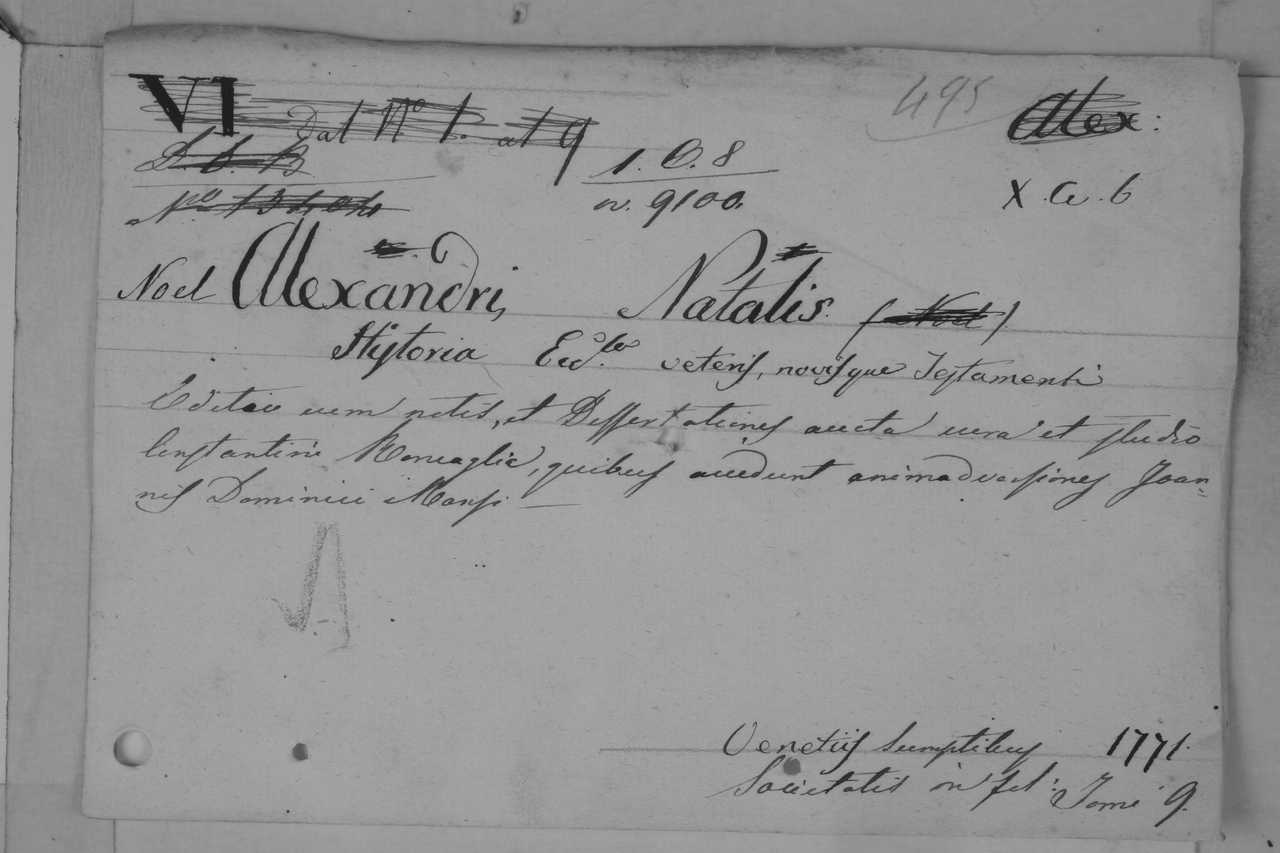 VI dal No 1. al 9
495
Alex:
1. O. 8
n. 9100.
X. a. 6
Noel Alexandri, Natalis. (Noel)
Hystoria Eccl.ca veteris, novisque Testamenti
Editio cum notis, et Dissertationes aucta cura et studio
Constantini Roncaglia, quibus accedunt animadversiones Joan-
nis Dominici Mansi —
A
Venetiis sumptibus 1771.
Societatis in fol: Tomi 9.